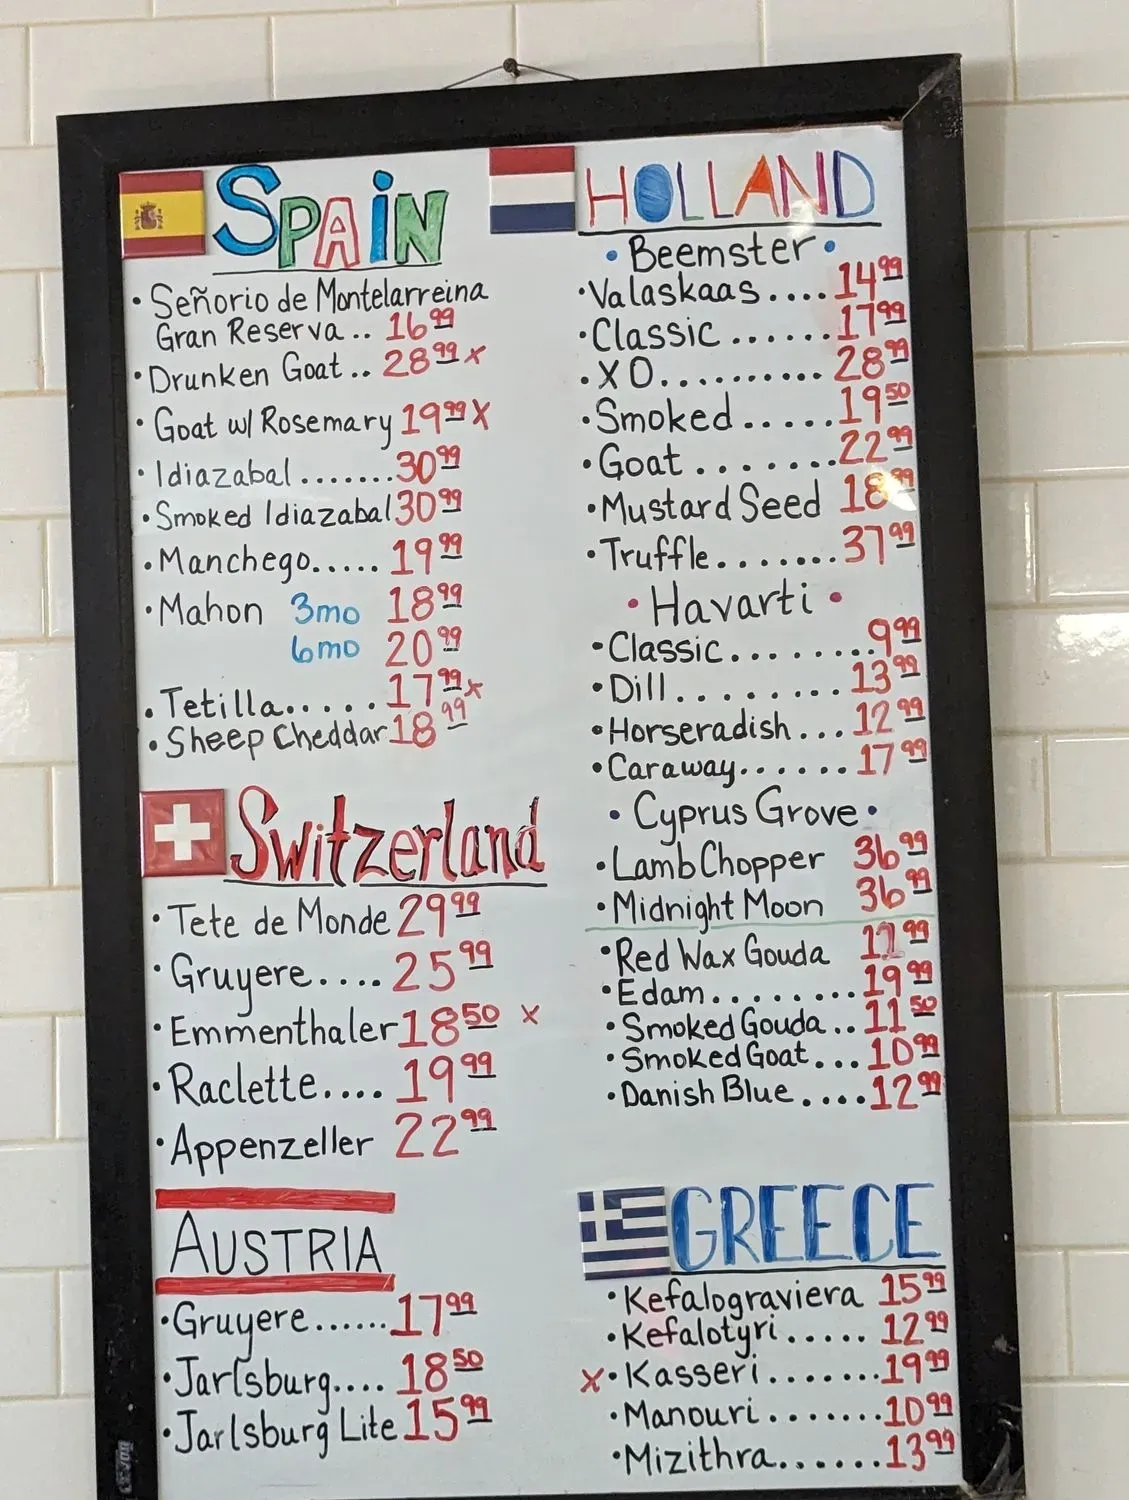 SPAIN
• Señorio de Montelarreina
Gran Reserva .. 16.99
• Drunken Goat .. 28.99 x
• Goat w/ Rosemary 19.99 X
• Idiazabal ....... 30.99
• Smoked Idiazabal 30.99
• Manchego..... 19.99
• Mahon 3mo 18.99
6mo 20.99
• Tetilla...... 17.99 x
• Sheep Cheddar 18.99
Switzerland
• Tete de Monde 29.99
• Gruyere.... 25.99
• Emmenthaler 18.50 x
• Raclette.... 19.99
• Appenzeller 22.99
AUSTRIA
• Gruyere...... 17.99
• Jarlsburg.... 18.50
• Jarlsburg Lite 15.99
HOLLAND
• Beemster •
• Valaskaas .... 14.99
• Classic ...... 17.99
• XO.......... 28.99
• Smoked ..... 19.50
• Goat ....... 22.99
• Mustard Seed 18.99
• Truffle....... 37.99
• Havarti •
• Classic........ 9.99
• Dill........ 13.99
• Horseradish ... 12.99
• Caraway...... 17.99
• Cyprus Grove •
• Lamb Chopper 36.99
• Midnight Moon 36.99
• Red Wax Gouda 11.99
• Edam........ 19.99
• Smoked Gouda .. 11.50
• Smoked Goat ... 10.99
• Danish Blue .... 12.99
GREECE
• Kefalograviera 15.99
• Kefalotyri ..... 12.99
x • Kasseri ....... 19.99
• Manouri ....... 10.99
• Mizithra...... 13.99